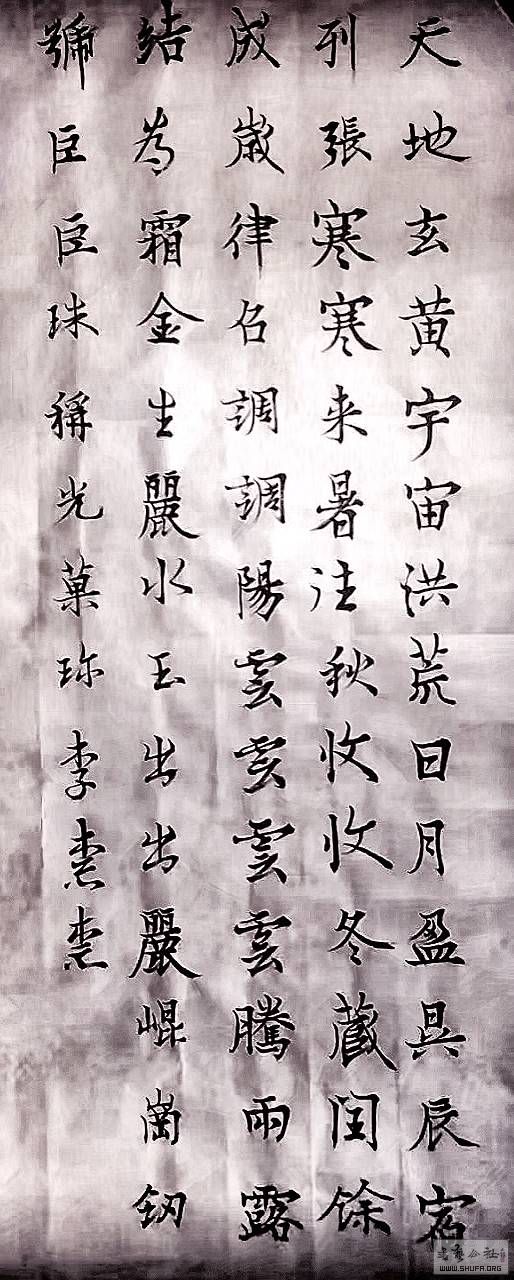 天地玄黄宇宙洪荒日月盈昃辰宿
列張寒寒来暑往秋收收冬蔵闰馀
成歲律召調調陽雲雲雲雲騰雨露
结為霜金生麗水玉出出麗崐崗釼
號臣臣珠稱光菓珎李柰柰
WWW.SHUFA.ORG